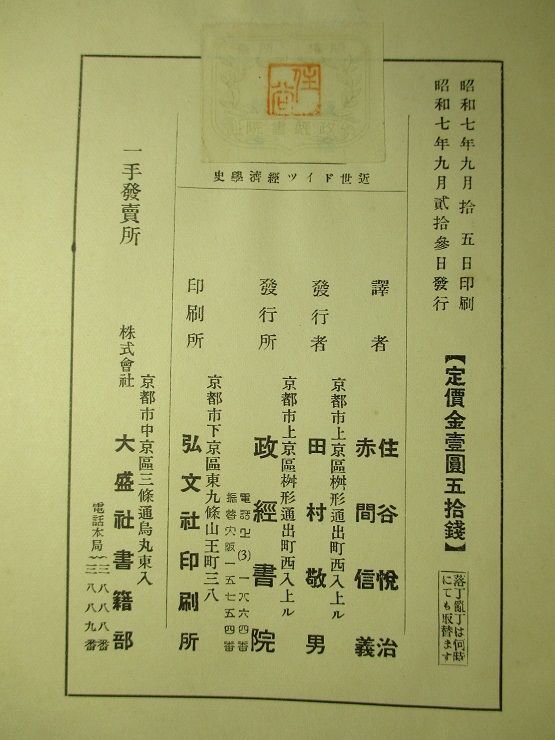 昭和七年九月拾五日印刷
昭和七年九月貳拾參日發行
【定價金壹圓五拾錢】
落丁亂丁は何時
にても取替ます
近世ドイツ經濟學史
譯者
住谷悅治
赤間信義
京都市上京區桝形通出町西入上ル
發行者
田村敬男
京都市上京區桝形通出町西入上ル
發行所
政經書院
振替大阪一五七五四番
京都市下京區東九條山王町三八
印刷所
弘文社印刷所
一手發賣所
京都市中京區三條通烏丸東入
株式會社
大盛社書籍部
電話本局
三八八八番
三八八九番